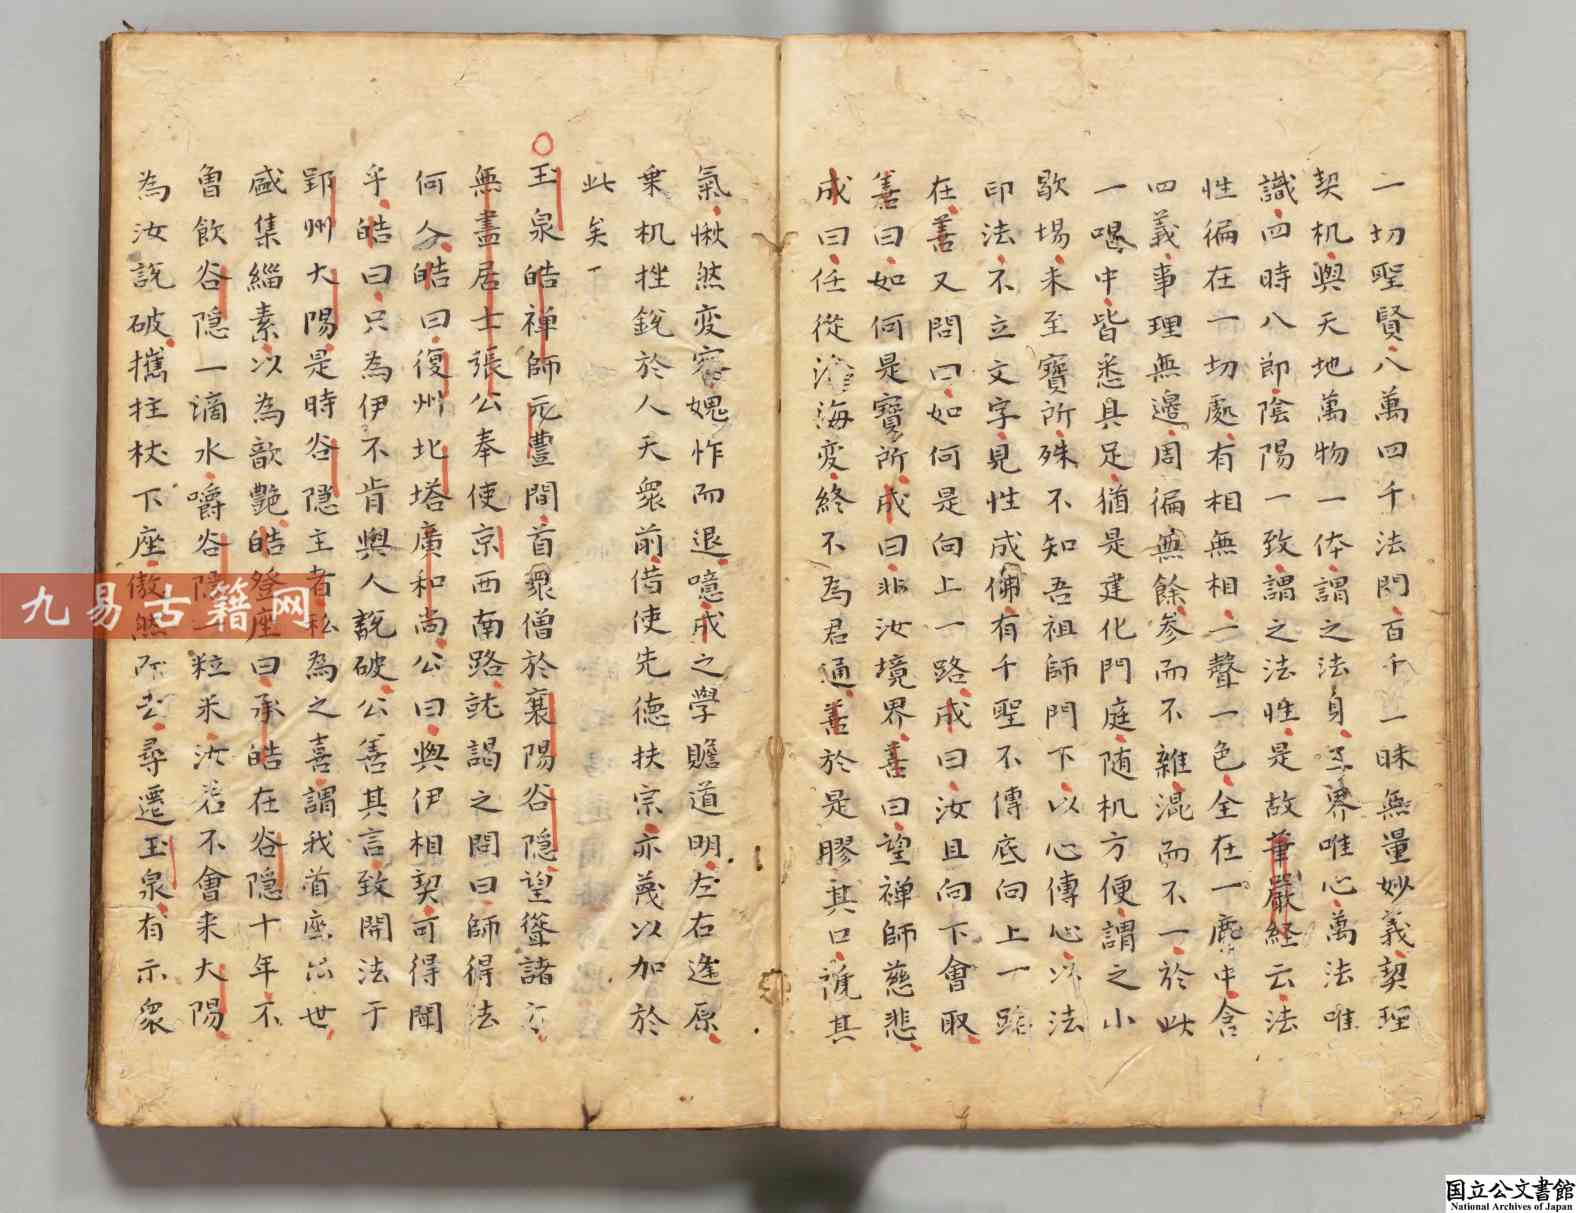 一切聖賢八萬四千法門百千一昧無量妙義契理
契机與天地萬物一体謂之法身三界唯心萬法唯
識四時八即陰陽一致謂之法性是故華嚴経云法
性徧在一切處有相無相一聲一色全在一塵中含
四義事理無邊周徧無餘参而不雜混而不一於此
一喝中皆悉具足猶是建化門庭随机方便謂之小
歇場未至寶所殊不知吾祖師門下以心傳心以法
印法不立文字見性成佛有千聖不傳底向上一路
在善又問曰如何是向上一路成曰汝且向下會取
善曰如何是寶所成曰非汝境界善曰望禅師慈悲
成曰任從滄海変終不為君通善於是膠其口褫其
氣愀然変容媿怍而退噫成之學贍道明左右逢原
乗机挫銳於人天衆前借使先德扶宗亦蔑以加於
此矣
玉泉皓禅師元豊間首衆僧於襄陽谷隠望聳諸方
無盡居士張公奉使京西南路就謁之問曰師得法
何人皓曰復州北塔廣和尚公曰與伊相契可得聞
乎皓曰只為伊不肯與人説破公善其言致開法于
郢州大陽是時谷隠主者私為之喜謂我首座出世
盛集緇素以為歆艶皓登座曰承皓在谷隠十年不
曾飲谷隠一滴水嚼谷隠一粒米汝若不會来大陽
為汝説破攜拄杖下座傲然而去尋遷玉泉有示衆
九易古籍网
国立公文書館
National Archives of Japan